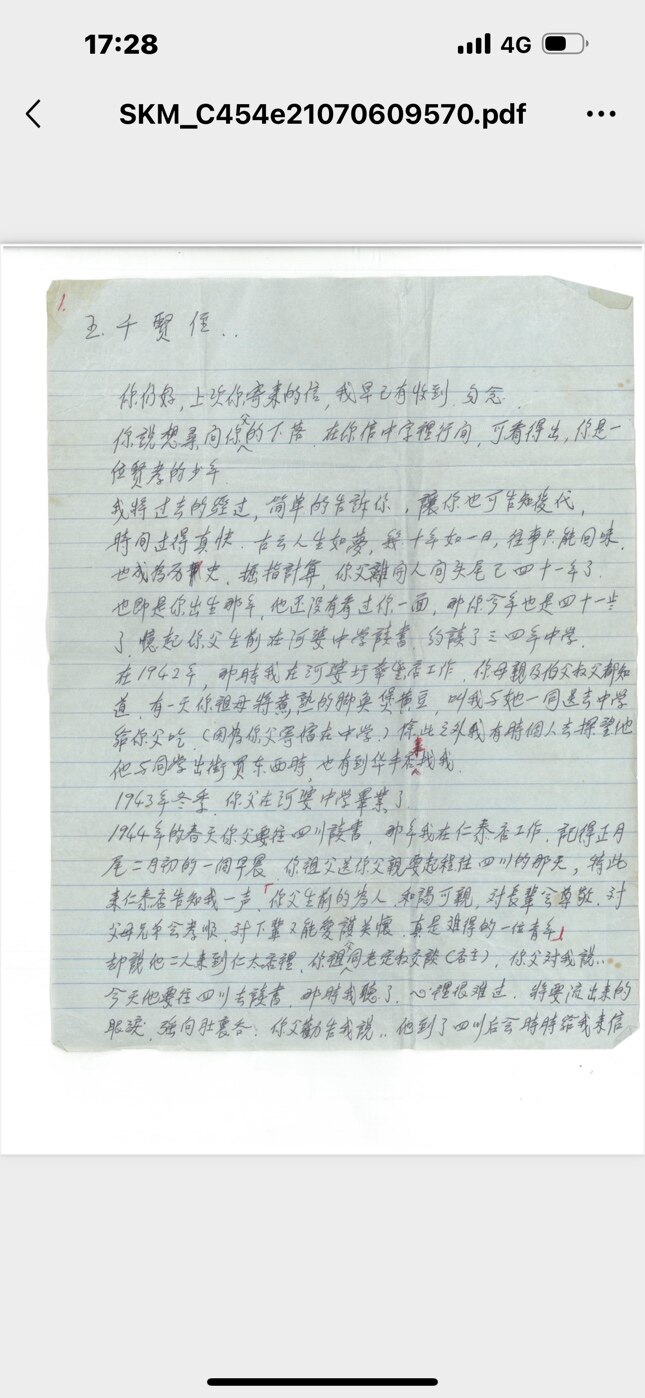 17:28
4G
SKM_C454e21070609570.pdf
1.
玉千賢侄..
你们好,上次你寄來的信,我早已有收到 勿念
你說想尋问你父的下落.在你信中字裡行间,可看得出,你是一
位賢孝的少年.
我将过去的經过,简单的告訴你,讓你也可告知後代,
時间过得真快.古云人生如夢,數十年如一日,往事只能回味.
也成為历史.掘指計算,你父離開人间头尾已四十一年了
也即是你出生那年,他还沒有看过你一面,那你今年也是四十一岁
了.憶起你父生前在河婆中学讀書 约讀了三四年中学.
在1942年,那時我在河婆圩華生店工作,你母親及伯父叔父都知
道.有一天你祖母将煮熟的脚魚煲黄豆,叫我与她一同送去中学
給你父吃,(因為你父寄宿在中学.)除此之外我有時個人去探望他
他与同学出街買东西時,也有到华丰店來找我.
1943年冬季.你父在河婆中学畢業了.
1944年的春天你父要往四川讀書.那年我在仁泰店工作.記得正月
尾二月初的一個早晨.你祖父送你父親要起程往四川的那天,特此
來仁泰店告知我一声「你父生前的為人.和謁可親,对長輩会尊敬.对
父母兄弟会孝順.对下輩又能愛護关懷.真是难得的一位青年」
却說他二人來到仁太店裡.你祖父同老定叔交談(店主),你父对我說..
今天他要往四川去讀書.那時我聽了.心裡很难过.将要流出來的
眼淚.强向肚裏吞.你父勸告我說..他到了四川后会時時給我來信